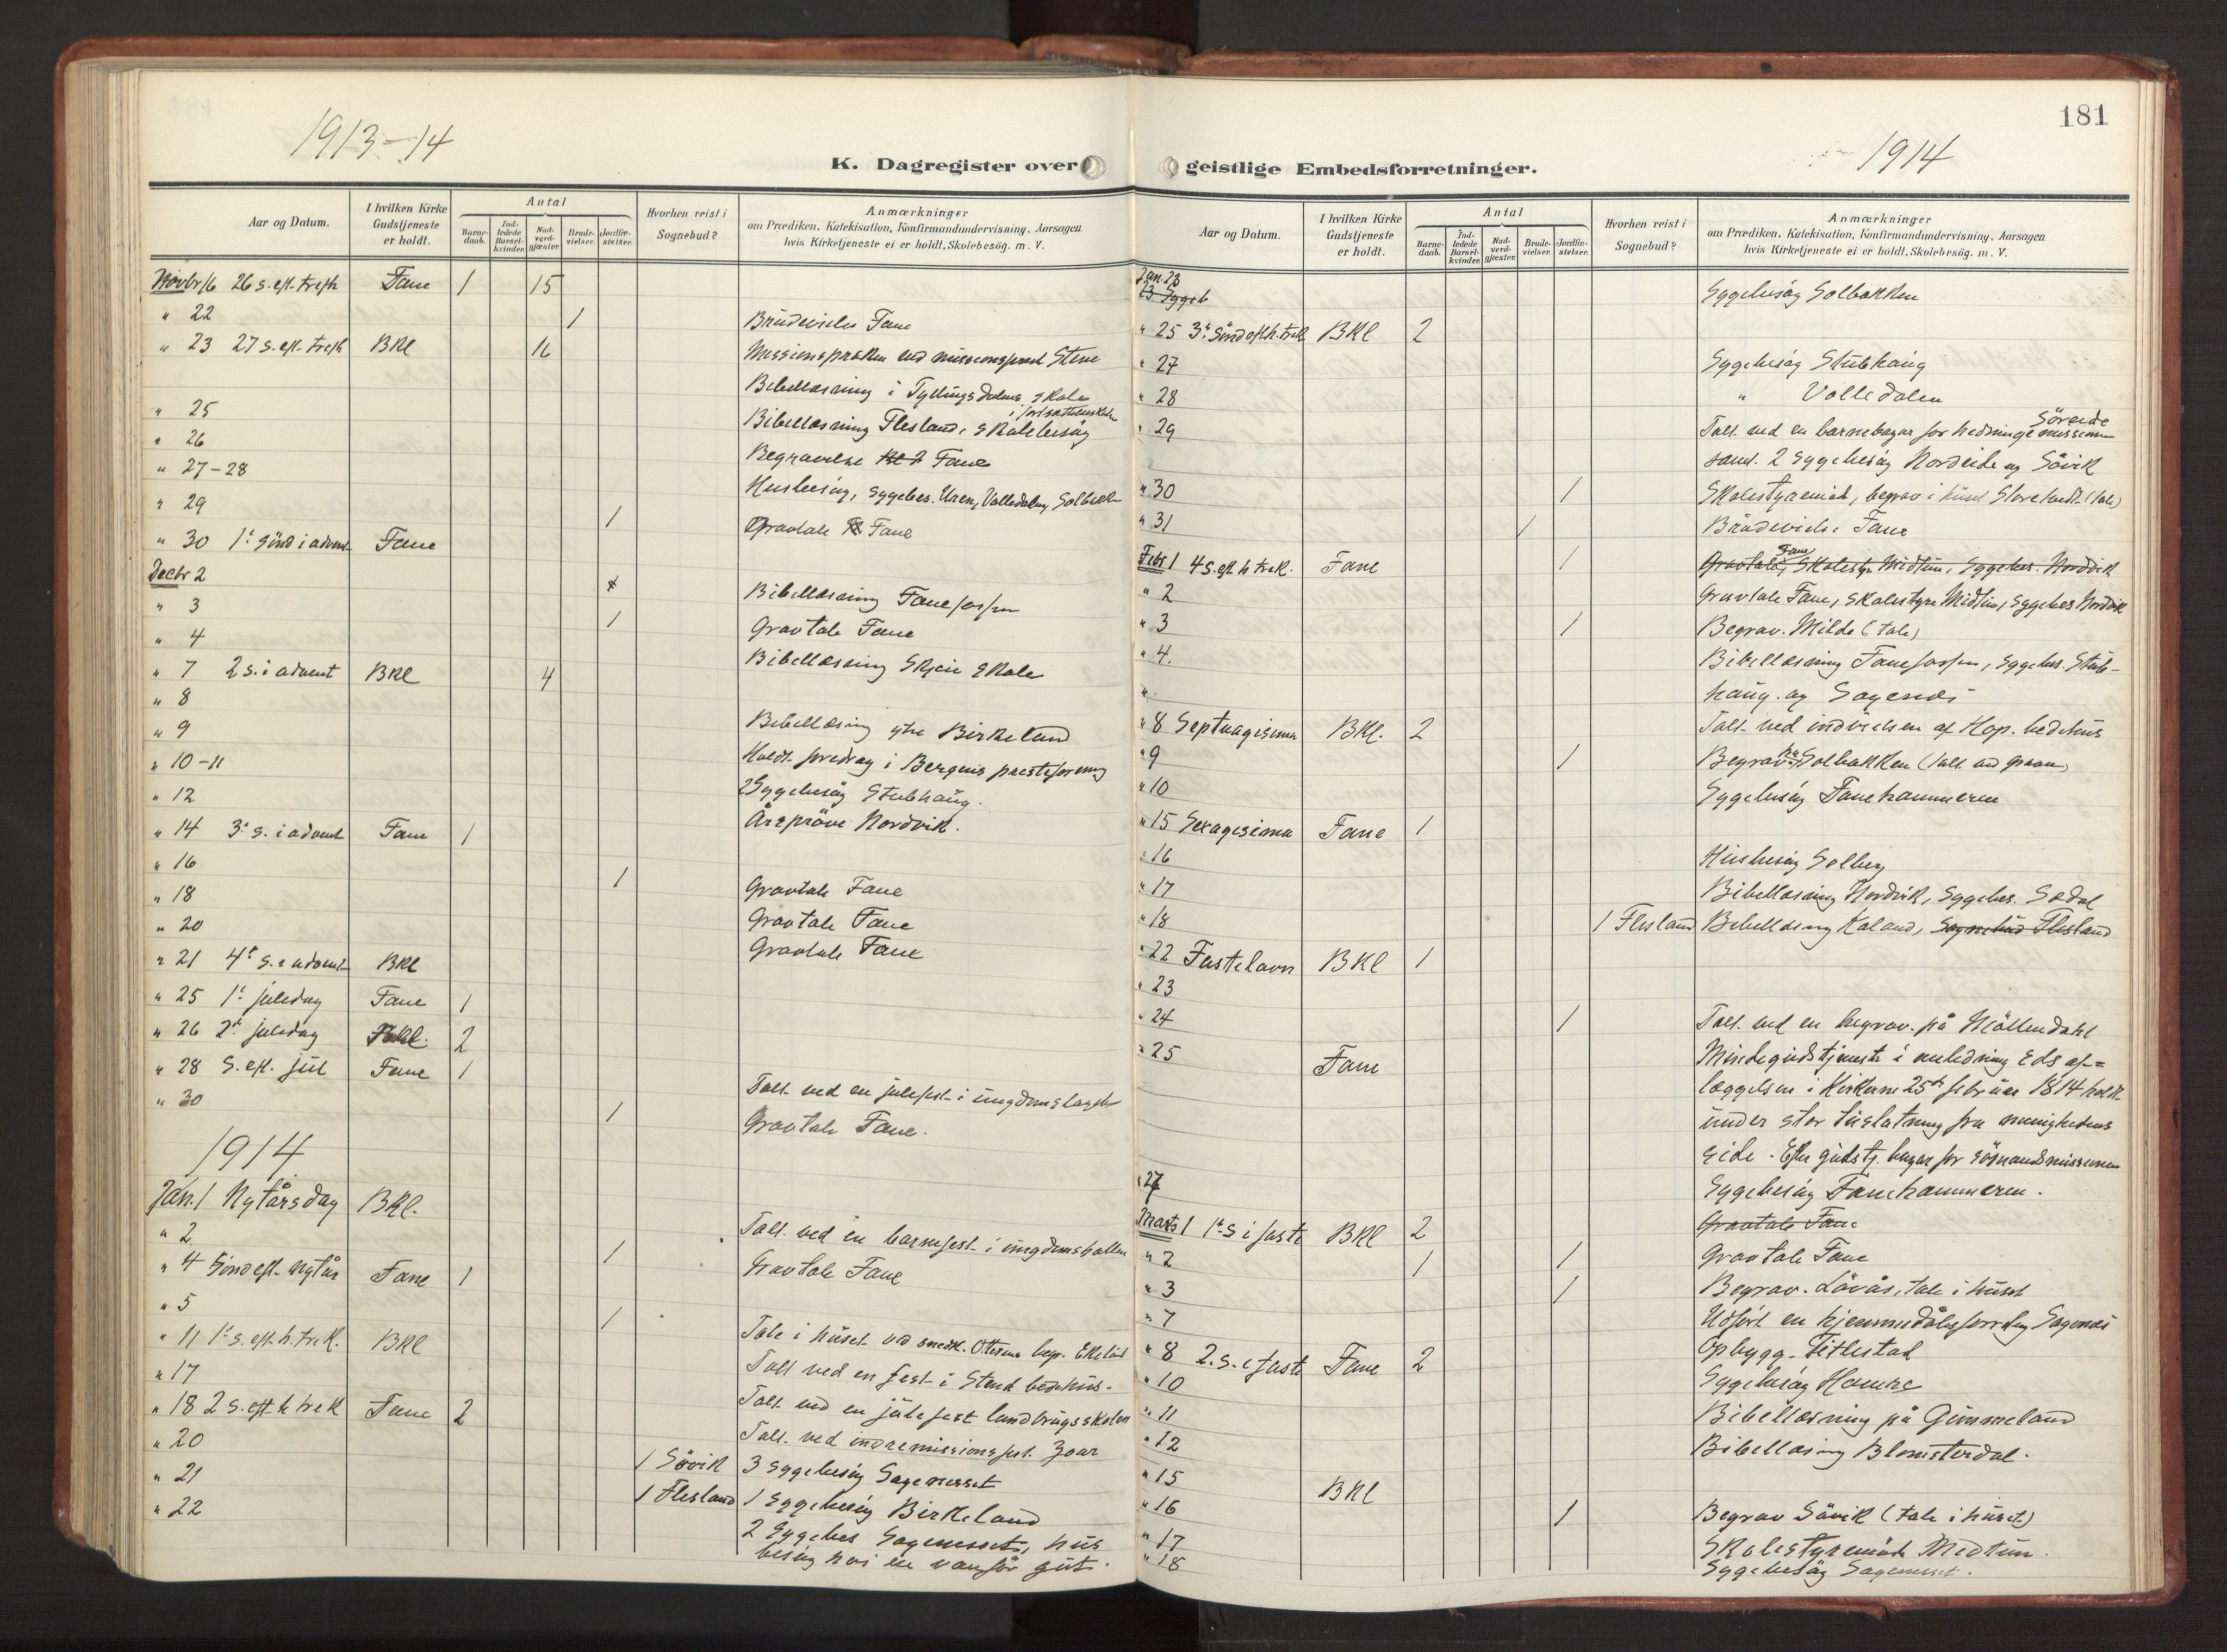 1913-14
K. Dagregister over
Aar og Datum.
I hvilken Kirke Gudstjeneste er holdt.
Antal
Barne-daab.
Ind-ledede Barsel-kvinder.
Nad-verd-gjæster.
Brude-vielser.
Jordfæ-stelser.
Hvorhen reist i Sognebud?
Anmærkninger
om Prædiken, Katekisation, Konfirmandundervisning, Aarsagen
hvis Kirketjeneste ei er holdt, Skolebesög. m. V.
Novbr 16 26 s. eft. trefh Fane 1 15
" 22 1 Brüdevielse Fane
" 23 27 s. eft. trefh BKl 16 Missionspræken ved missionsprest Stene
Bibellæsning i Tyllingsdalens skole
" 25 Bibellæsning Flesland, skolebesög i fortsættelsesskolen
" 26 Begravelse Fane
" 27-28 Husbesög, sygebes. Uren, Valledalen, Solbakk
" 29 1 Gravtale Fane
" 30 1ste sönd i advent Fane
Decbr 2 Bibellæsning Fanefossen
" 3 1 Gravtale Fane
" 4 Bibellæsning Skjeie skole
" 7 2 s. i advent BKl 4
" 8 Bibellæsning ytre Birkeland
" 9 Holdt foredrag i Bergens presteforening
" 10-11 2 Sygebesög Stubhaug.
" 12 Årspröve Nordvik.
" 14 3die s. i advent Fane 1
" 16 1 Gravtale Fane
" 18 Gravtale Fane
" 20 Gravtale Fane
" 21 4de s. i advent BKl
" 25 1ste juledag Fane 1
" 26 2den juledag BKl. 2
" 28 S. eft. jul Fane 1 Talt ved en julefest i ungdomslaget
" 30 1 Gravtale Fane.
1914
Jan. 1 Nytårsdag BKl.
" 2 Talt ved en barnefest i ungdomshallen
" 4 Sönd eft. nytår Fane 1 1 Gravtale Fane
" 5 1
" 11 1ste s. eft. h. trek. BKl Tale i huset ved begr.
" 17 Talt ved en fest i Stend bedehus.
" 18 2 s. eft. h trek Fane 2 Talt ved en julefest landbrugsskolen
" 20 Talt ved indremissionsfest Zoar
" 21 1 Sövik 3 sygebesög Sagenesset
" 22 1 Flesland 1 sygebesög Birkeland
2 Sygebes Sagenesset, hus
besög hos en vanför gut.
181
1914
geistlige Embedsforretninger.
Aar og Datum.
I hvilken Kirke Gudstjeneste er holdt.
Antal
Barne-daab.
Ind-ledede Barsel-kvinder.
Nad-verd-gjæster.
Brude-vielser.
Jordfæ-stelser.
Hvorhen reist i Sognebud?
Anmærkninger
om Prædiken, Katekisation, Konfirmandundervisning, Aarsagen
hvis Kirketjeneste ei er holdt, Skolebesög. m. V.
Jan. 23 Sygebesög Solbakken
" 25 3die Sönd eft h. trek BKl 2
" 27 Sygebesög Stubhaug
" 28 " Valledalen
" 29 Talt ved en barnebazar for hedningemissionen Söreide
samt 2 sygebesög Nordeide og Sövik
" 30 1 Skolestyremöde, begrav i huset Storetvedt (tale)
" 31 1 Brüdevielse Fane
Febr 1 4 s. eft h trek. Fane 1 Gravtale Fane, Skolesty Midtun, Sygebes. Nordvik
" 2 Gravtale Fane, skolestyre Midtun, sygebes Nordvik
" 3 1 Begrav. Milde (tale)
" 4. Bibellæsning Fanefossen, sygebes. Stub-
" haug og Sagenes
" 8 Septuagesima BKl. 2 Talt ved indvielsen af Hop bedehus
" 9 1 Begrav Solbakken (talt ved graven)
" 10 Sygebesög Fanehammeren
" 15 Sexagesima Fane 1
" 16 Husbesög Solberg
" 17 Bibellæsning Nordvik, sygebes. Sædal
" 18 1 Flesland Bibellæsning Kaland, Sognebud Flesland
" 22 Fastelavn BKl 1
" 23
" 24 1 Talt ved en begrav. på Möllendahl
" 25 Fane Mindegudstjeneste i anledning Edsaf=
læggelsen i Kirkerne 25de februar 1814 holdt
under stor tilslutning fra menighedens
side. Efter gudstj. bazar for sömandsmissionen
" 27 Sygebesög Fanehammeren.
Gravtale Fane
Marts 1 1ste s i faste BKl 2
" 2 1 1 Gravtale Fane
" 3 1 Begrav. Lövås, tale i huset
" 7 Udfört en hjemmedåbsforretning Sagenes
" 8 2. s. i faste Fane 2 Opbygg. Titlestad
" 10 Sygebesög Hamre
" 11 Bibellæsning på Gimmeland
" 12 Bibellæsning Blomsterdal.
" 15 BKl
" 16 1 Begrav Sövik (tale i huset)
" 17 Skolestyremöde Midtun.
" 18 Sygebesög Sagenesset.